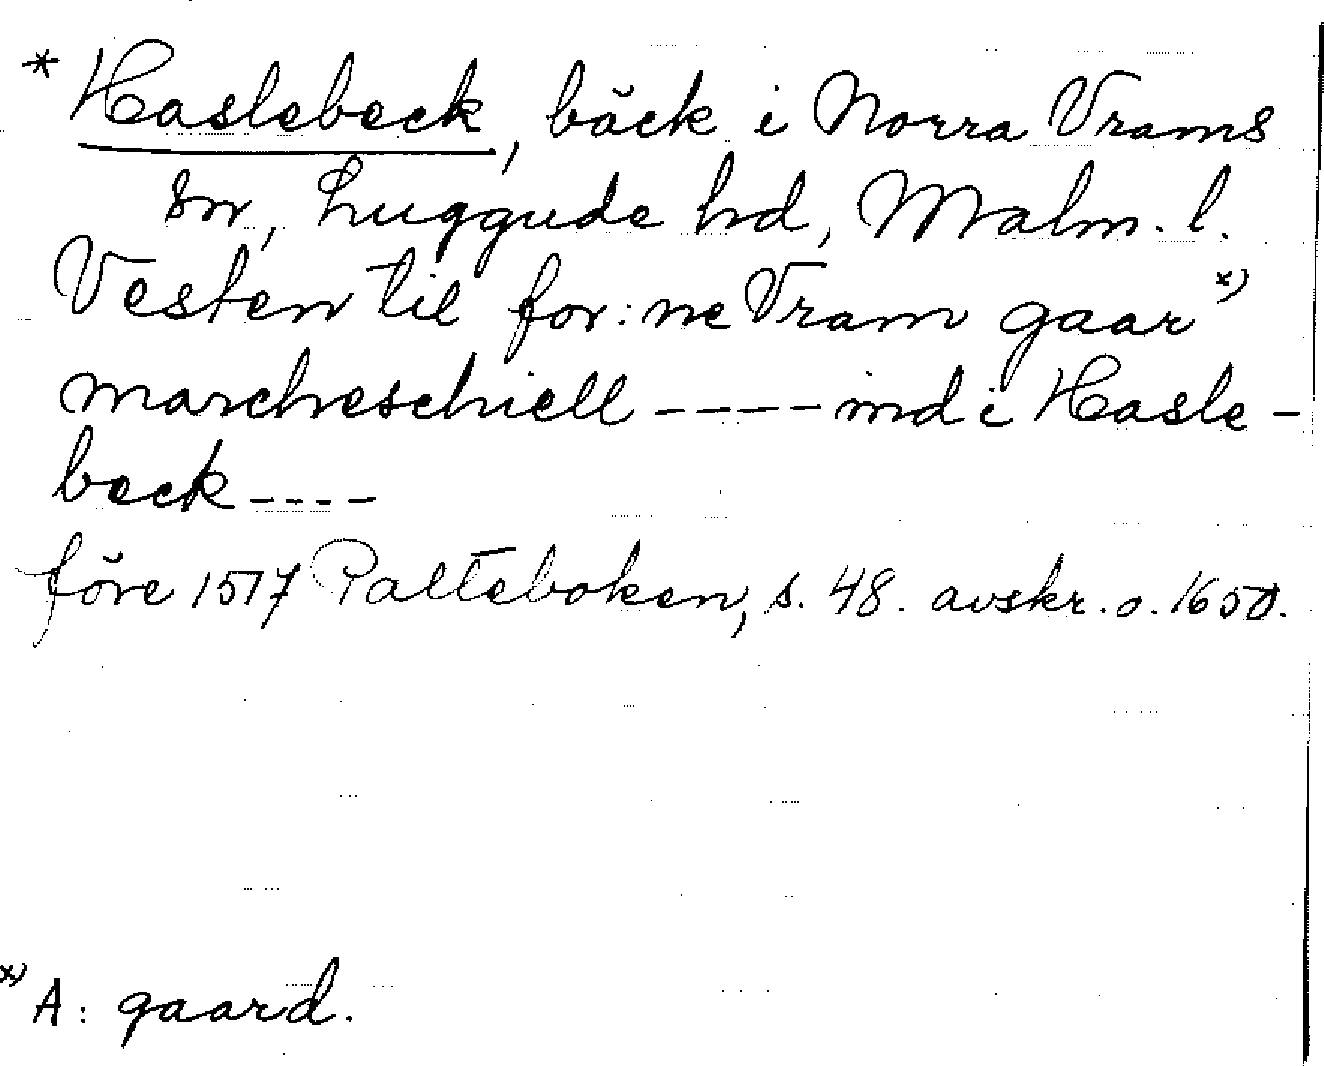 * Haslebeck, bäck i Norra Vrams
sn, Luggude hd, Malm. l.
Vesten til for:ne Vram gaar x)
marcheschiell ---- ind i Hasle-
beck ----
före 1517 Palteboken, s. 48. avskr. o. 1650.
x) A: gaard.